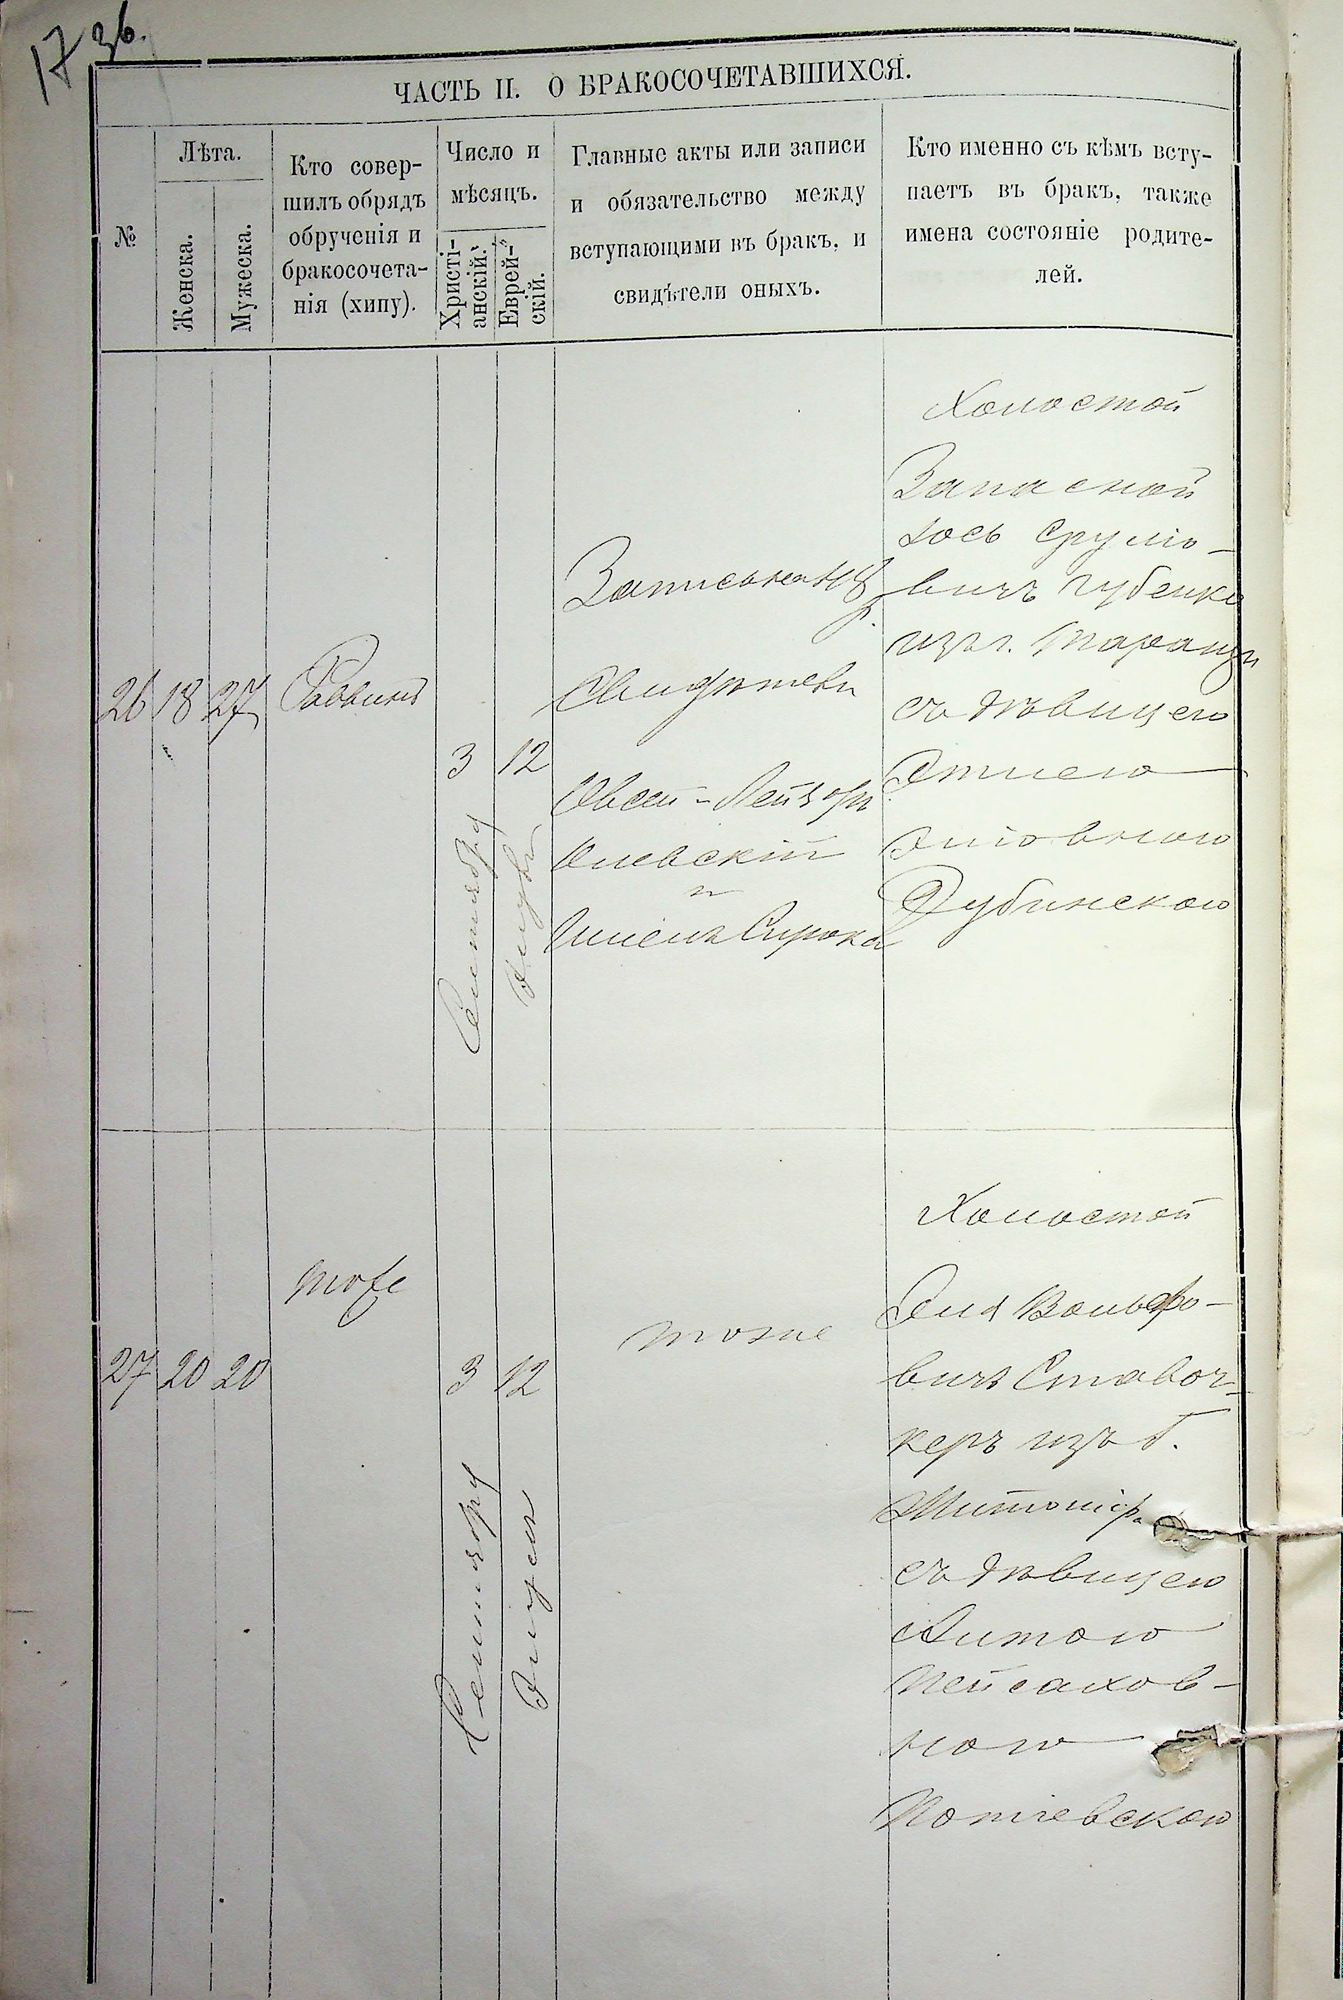 17 36.
ЧАСТЬ II. О БРАКОСОЧЕТАВШИХСЯ.
№
Лѣта.
Женска.
Мужеска.
Кто совер-
шилъ обрядъ
обрученія и
бракосочета-
нія (хипу).
Число и
мѣсяцъ.
Христі-
анскій.
Еврей-
скій.
Главные акты или записи
и обязательство между
вступающими въ бракъ, и
свидѣтели оныхъ.
Кто именно съ кѣмъ всту-
паетъ въ бракъ, также
имена состояніе родите-
лей.
26 18 27
Раввинъ
3 12
Сентября
Элула
Запись на 48
р.
Свидѣтели
Овсей-Лейзоръ
Киевскій
и
Шмелъ Сирота
Холостой
Запасной
Іось Срулiо-
вичъ Губенко
изъ г. Таращи
съ дѣвицею
Этлею
Эліовною
Дубинскою
27 20 20
тоже
3 12
Сентября
Элула
тоже
Холостой
Эля Вольфо-
вичъ Ставоч-
керъ изъ г.
Житоміра
съ дѣвицею
Хитою
Пейсахов-
ною
Потіевскою